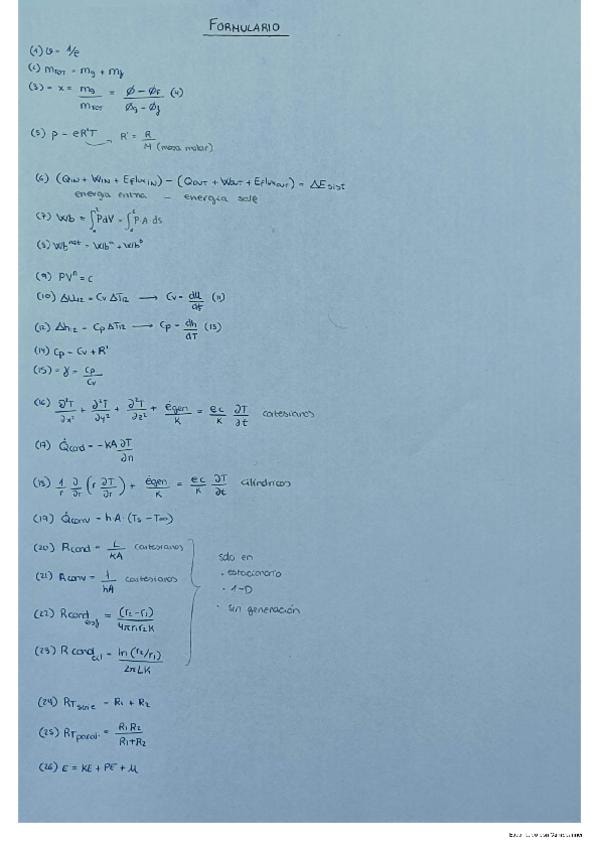 FORMULARIO
(1) υ = 1/ρ
(2) mTOT = mg + mf
(3) = x = mg/mTOT = (Ø - Øf)/(Øg - Øf) (4)
(5) p = ρR'T → R' = R/M (masa molar)
(6) (QIN + WIN + EflujoIN) - (QOUT + WOUT + EflujoOUT) = ΔEsist
energía entra - energía sale
(7) Wb = ∫PdV = ∫P·A·ds
(8)
(9) PVⁿ = C
(10) Δu12 = Cv ΔT12 → Cv = du/dt (11)
(12) Δh12 = Cp ΔT12 → Cp = dh/dT (13)
(14) Cp = Cv + R'
(15) = γ = Cp/Cv
(16) ∂²T/∂x² + ∂²T/∂y² + ∂²T/∂z² + ėgen/K = ρc/K ∂T/∂t cartesianos
(17) Q̇cond = -KA ∂T/∂n
(18) 1/r ∂/∂r (r ∂T/∂r) + ėgen/K = ρc/K ∂T/∂t cilíndricos
(19) Q̇conv = h·A·(Ts - T∞)
(20) Rcond = L/KA cartesianos
(21) Rconv = 1/hA cartesianos
(22) Rcond esf = (r2 - r1)/4πr1r2K
(23) Rcond cil = ln(r2/r1)/2πLK
solo en
· estacionario
· 1-D
· sin generación
(24) RT serie = R1 + R2
(25) RT paral. = R1R2/R1+R2
(26) E = KE + PE + U